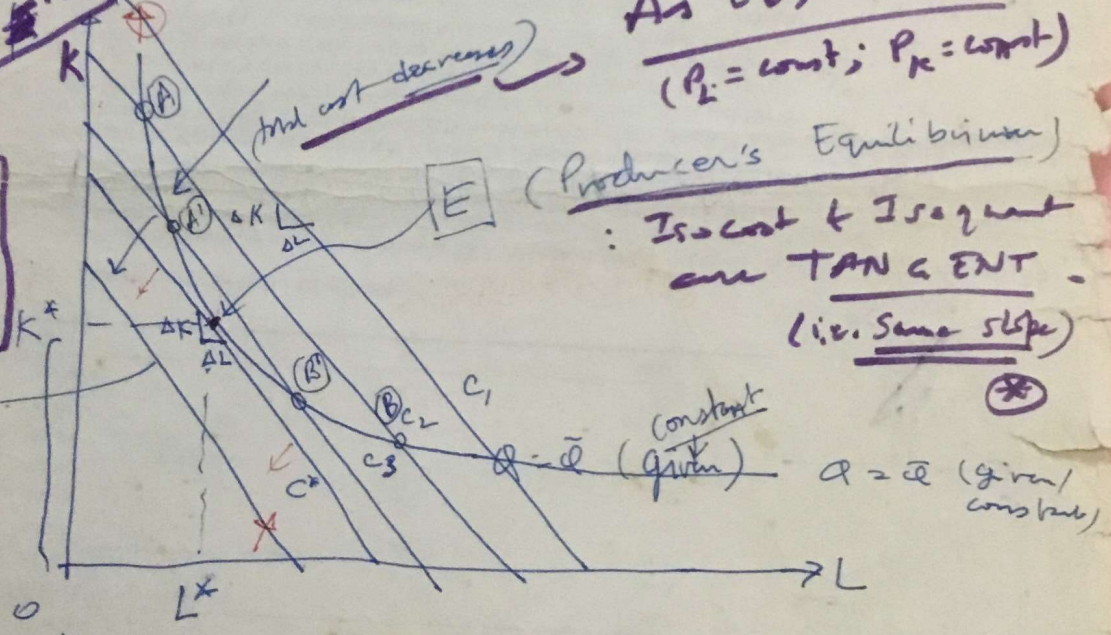 K
A
(total cost decreases) →
(P_L = const; P_K = const)
(Producer's Equilibrium)
E
A'
ΔK
ΔL
: Isocost & Isoquant
are TANGENT.
(i.e. Same slope)
*
K*
ΔK
ΔL
B'
B
C₂
C₁
C₃
C*
constant
Q = Q̄ (given)
Q = Q̄ (given/
constant)
O
L*
L